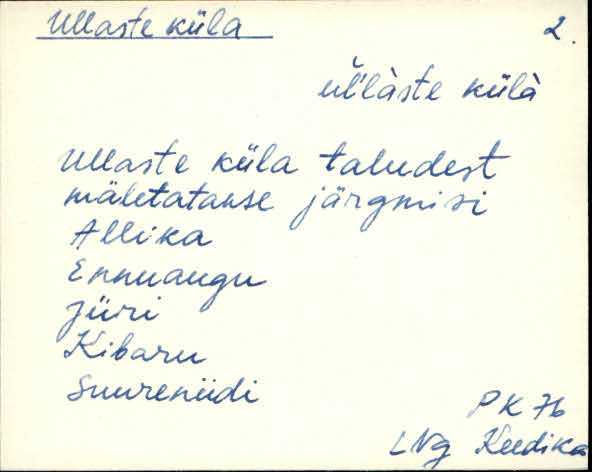 Ullaste küla 2.
ul̆l̀àste külà
Ullaste küla taludest
mäletatakse järgmisi
Allika
Ennuaugu
Jüri
Kibaru
Suureniidi
PK 76
LNg Keedika